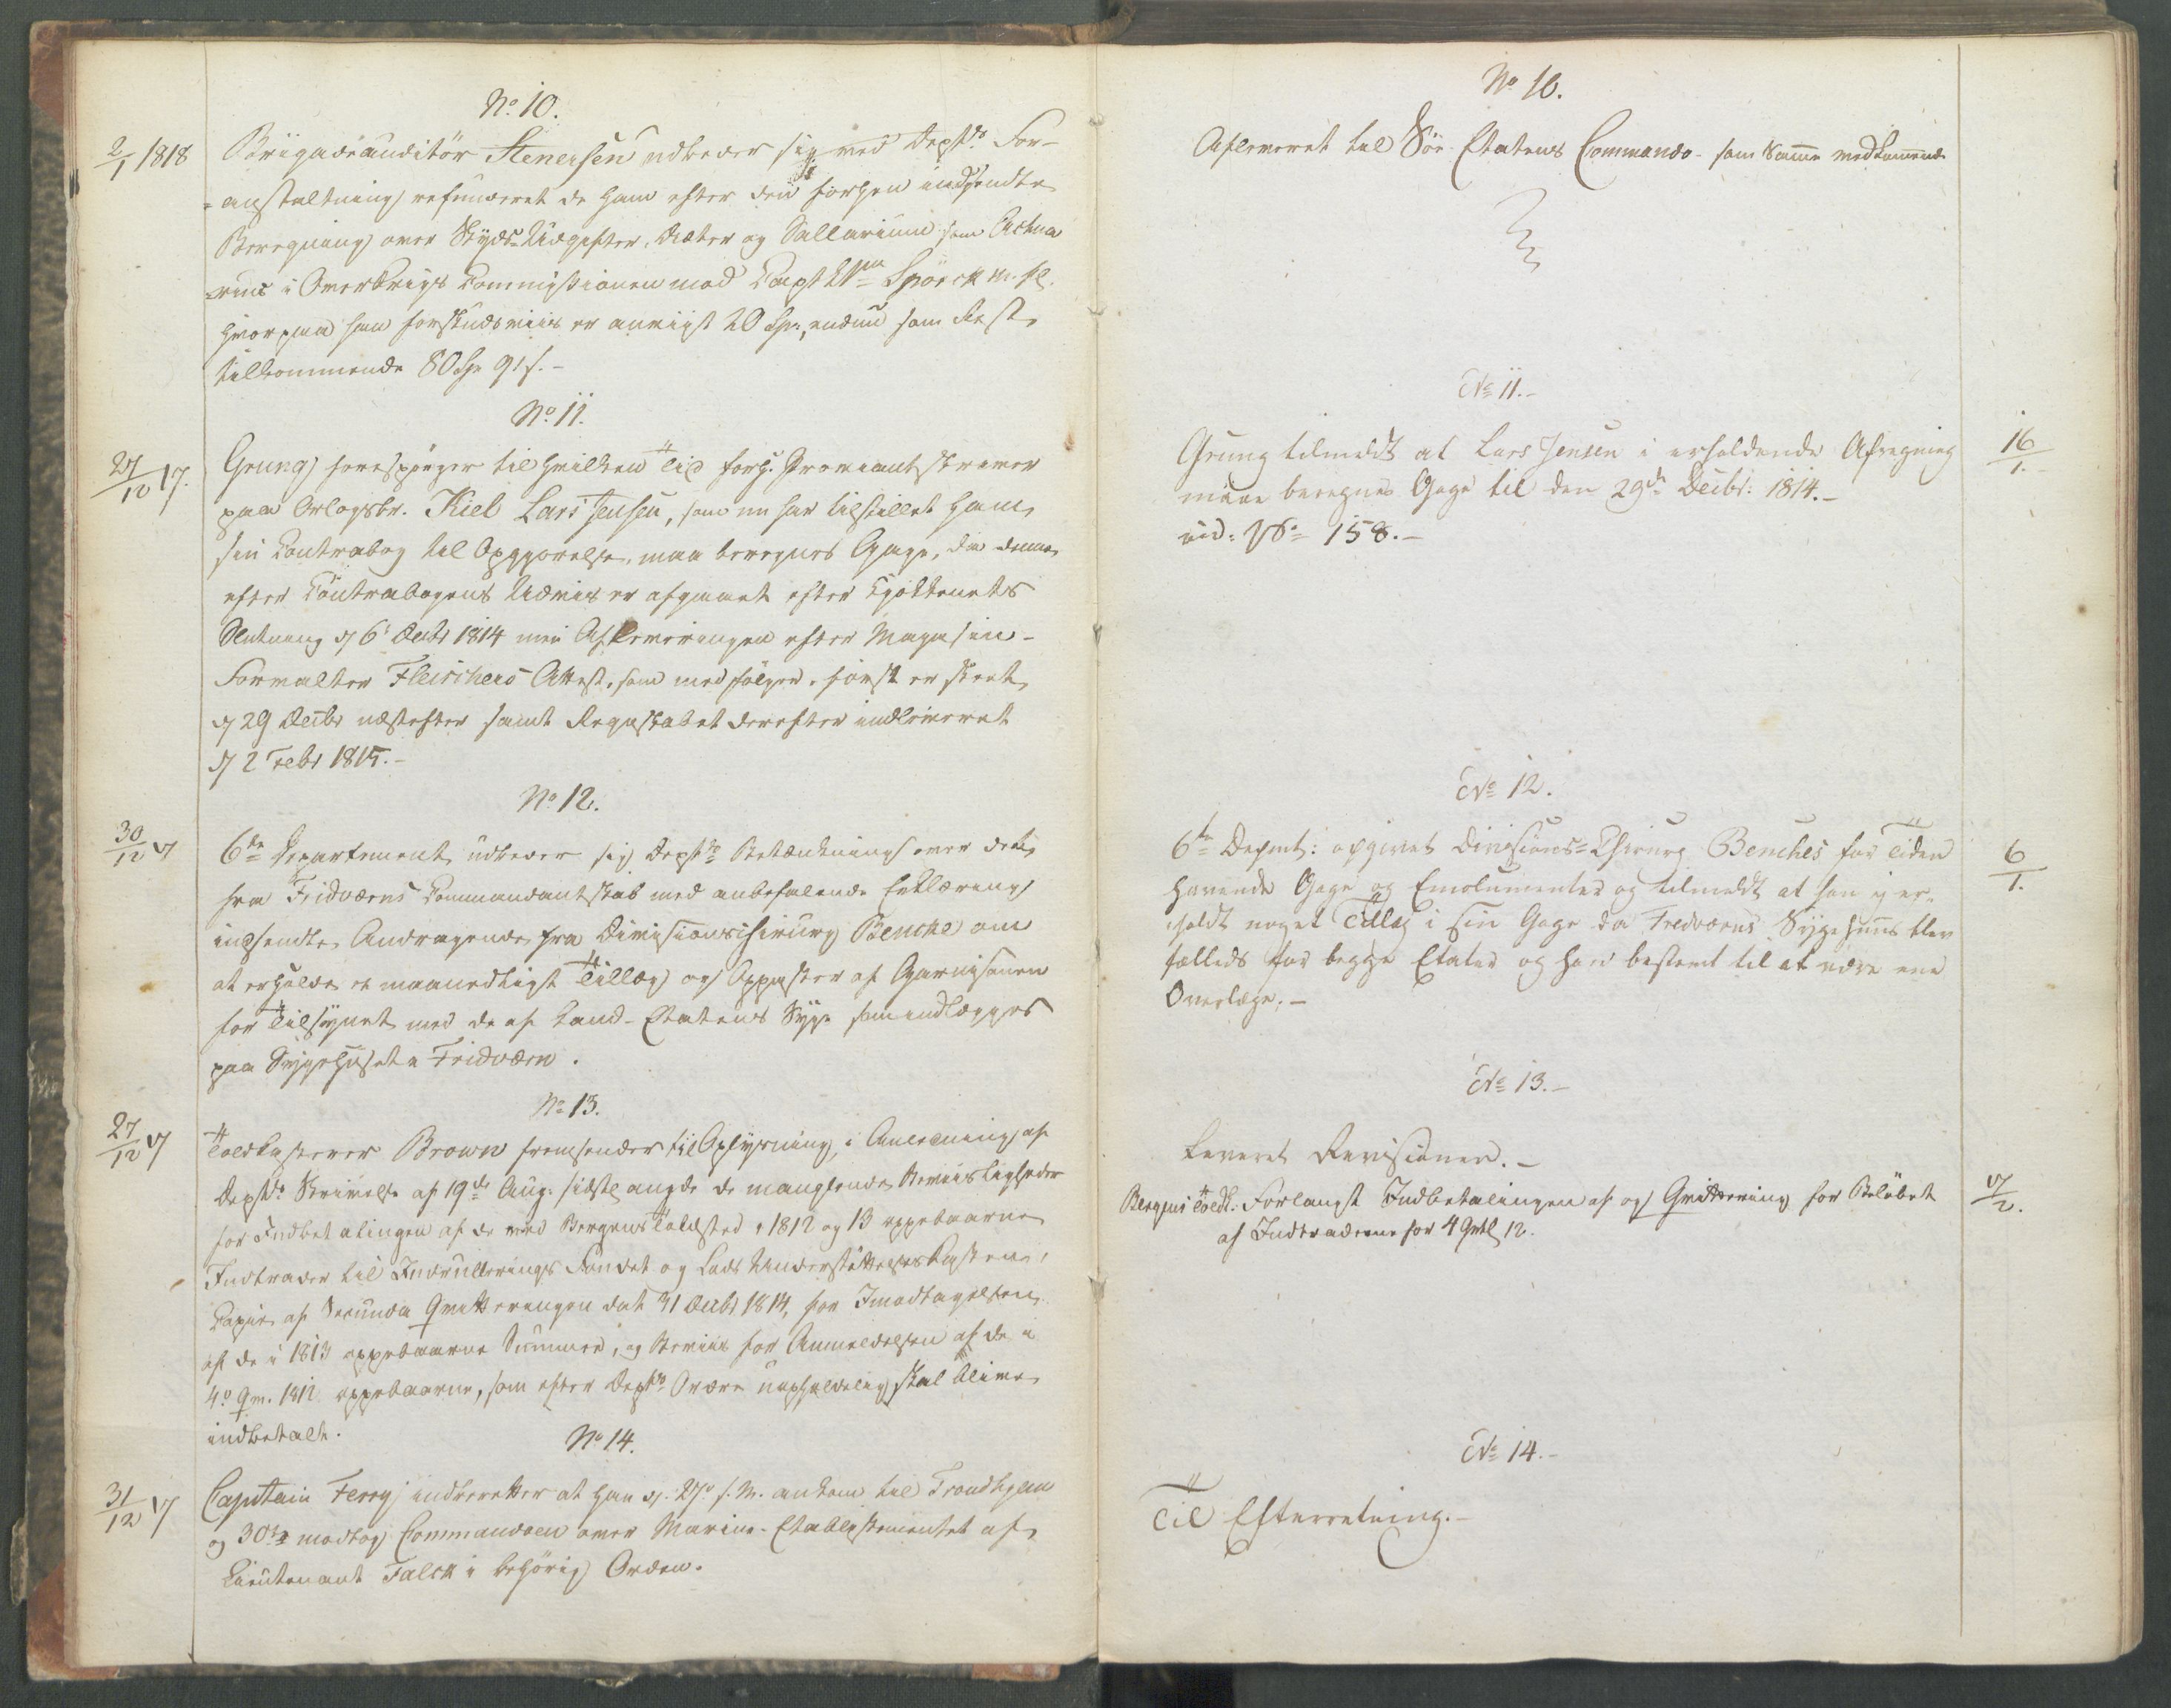 No 10.
2/1 1818
Brigadeauditör Stenersen udbeder sig ved Deptts For-
anstaltning refunderet de ham efter den forhen indsendte
Beregning over Skyds-Udgifter, Diæter og Sallarium som Actua
rius i Overkrigs Commissionen mod Capt Lt Spörck m. fl.
hvorpaa han forskudsviis er anviist 20 Sp., endnu som Rest
tilkommende 80 Sp 91 s.-
No 11.
27/12 17.
Grung forespörger til hvilken Tid forh. Proviantskriver
paa Orlogsbr. Kiel Lars Jensen, som nu har tilstillet ham
sin Contrabog til Opgjörelse, maa beregnes Gage, da denne
efter Contrabogens Udviis er afgaaet efter Togtets
Slutning d 6 Decbr 1814 men Afleveringen efter Magasin-
Forvalter Fleischers Attest, som medfölger, först er skeet
d 29 Decbr næstefter samt Regnskabet derefter indleveret
d 2 Febr 1815.-
No 12.
30/12 17
6te Departement udbeder sig Deptts Betænkning over det
fra Fridværns Commandantskab med anbefalende Erklæring
indsendte Andragende fra Divisionschirurg Bencke om
at erholde et maanedligt Tillæg og Oppasser af Garnisonen
for Tilsynet med de af Land-Etatens Syge som indlægges
paa Sygehuset Fridværn.
No 13.
27/12 17
Toldkasserer Brown fremsender til Oplysning, i Anledning af
Deptts Skrivelse af 19de Aug. sidstl angde de manglende Beviisligheder
for Indbetalingen af de ved Bergens Toldsted i 1812 og 13 oppebaarne
Indtrader til Indrullerings Fondet og Lods Understöttelses Kassen,
Copie af Secunda Qvitteringen dat 31 Decbr 1814, for Imodtagelsen
af de i 1813 oppebaarne Summer, og Beviis for Anmeldelsen af de i
4o Qv. 1812 oppebaarne, som efter Deptts Ordre uopholdelig skal blive
indbetalt.
No 14.
31/12 17
Capitain Ferry indberetter at han d. 27. s. M. ankom til Trondhjem
og 30te modtog Commandoen over Marine-Etablissementet af
Lieutenant Falck i behörig Orden.
No 10.
Afleveret til Söe-Etatens Commando- som Samme vedkommende
No 11.-
Grung tilmeldt at Lars Jensen i erholdende Afregning
16/1.-
maae beregnes Gage til den 29de Decbr: 1814.-
vid: No 158.-
No 12.
6te Depmt: opgivet Divisions-Chirurg Benches for Tiden
6/1.
havende Gage og Emolumenter og tilmeldt at han ej er-
holdt noget Tillæg i sin Gage da Fredværns Sygehuus blev
fælleds for begge Etater og han bestemt til at være ene
Overlæge.-
No 13.-
Leveret Revisionen.-
Bergens Toldk. Forlangt Indbetalingen af og Qvittering for Belöbet
17/2.
af Indtraderne for 4 Qvtl 12.
No 14.-
Til Efterretning.-